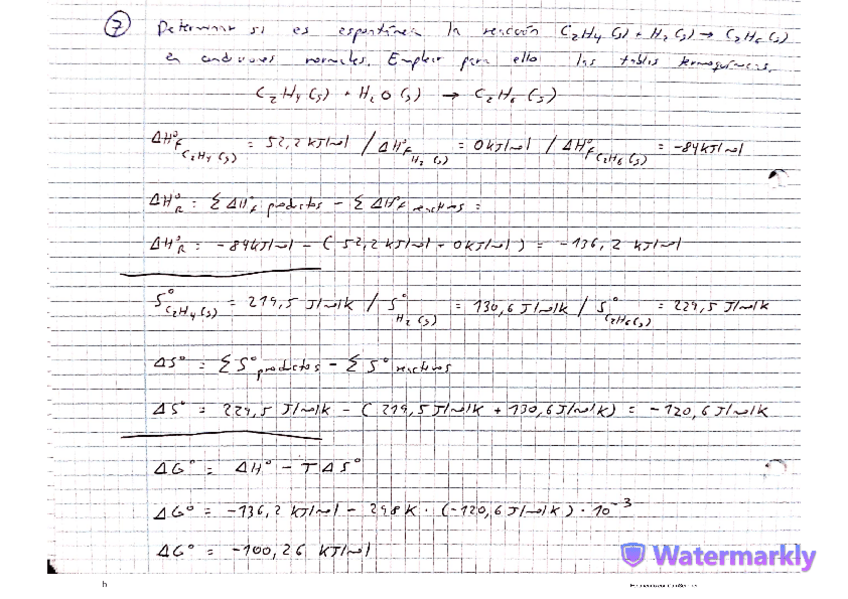 7 Determinar si es espontánea la reacción C₂H₄ (g) + H₂ (g) → C₂H₆ (g)
en condiciones normales. Emplear para ello las tablas termoquímicas.
C₂H₄ (g) + H₂O (g) → C₂H₆ (g)
ΔH°f C₂H₄ (g) = 52,2 kJ/mol / ΔH°f H₂ (g) = 0 kJ/mol / ΔH°f C₂H₆ (g) = -84 kJ/mol
ΔH°R = Σ ΔH°f productos - Σ ΔH°f reactivos =
ΔH°R = -84 kJ/mol - (52,2 kJ/mol + 0 kJ/mol) = -136,2 kJ/mol
S° C₂H₄ (g) = 219,5 J/molK / S° H₂ (g) = 130,6 J/molK / S° C₂H₆ (g) = 229,5 J/molK
ΔS° = Σ S° productos - Σ S° reactivos
ΔS° = 229,5 J/molK - (219,5 J/molK + 130,6 J/molK) = -120,6 J/molK
ΔG° = ΔH° - TΔS°
ΔG° = -136,2 kJ/mol - 298K · (-120,6 J/molK) · 10⁻³
ΔG° = -100,26 kJ/mol
Watermarkly